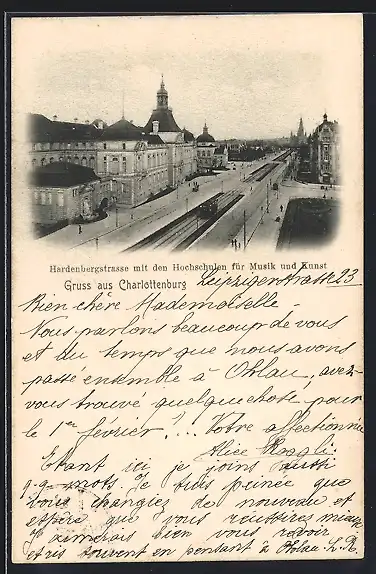 Hardenbergstrasse mit den Hochschulen für Musik und Kunst
Gruss aus Charlottenburg
Leipzigerstrasse 23
Bien chère Mademoiselle
Nous parlons beaucoup de vous
et du temps que nous avons
passé ensemble à Ohlau, avez-
vous trouvé quelque chose pour
le 1er février?... Votre affectionnée
Alice
Etant ici je joins aussi
q.q. mots. Je suis peinée que
vous changiez de nouveau et
espère que vous réussirez mieux
J'aimerais bien vous revoir
et suis souvent en pensant à Ohlau.